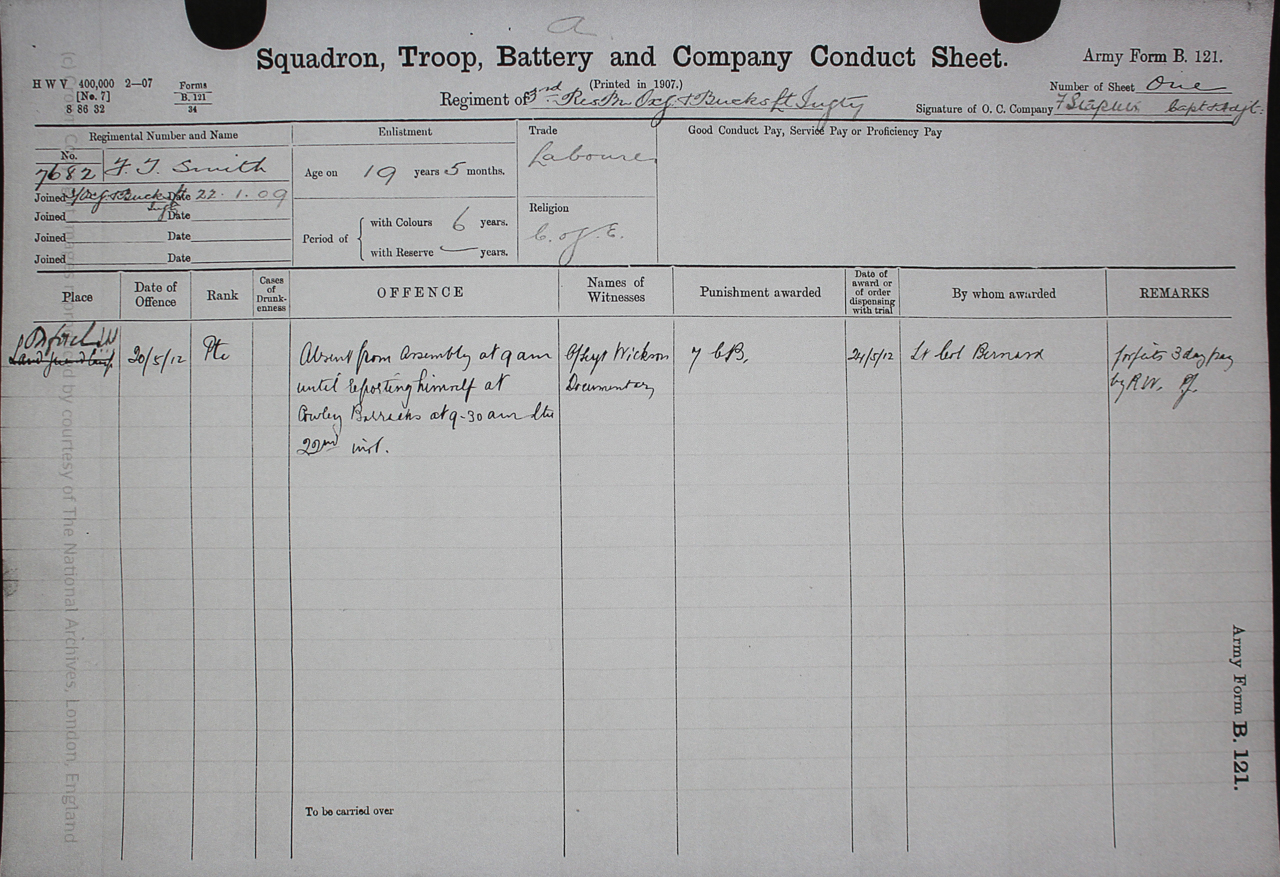 a
Squadron, Troop, Battery and Company Conduct Sheet.
Army Form B. 121.
H W V 400,000 2—07
[No. 7]
8 86 32
Forms
B. 121
34
(Printed in 1907.)
Regiment of 3rd Res Bn Oxf & Bucks Lt Infty
Number of Sheet One
Signature of O. C. Company Capt & Adjt.
Regimental Number and Name
No.
7682
F. T. Smith
Joined 3/Oxf & Bucks Date 22.1.09
Joined Date
Joined Date
Joined Date
Enlistment
Age on 19 years 5 months.
Period of
with Colours 6 years.
with Reserve — years.
Trade
Labourer
Religion
C. of E.
Good Conduct Pay, Service Pay or Proficiency Pay
Place
Date of Offence
Rank
Cases of Drunk-enness
OFFENCE
Names of Witnesses
Punishment awarded
Date of award or of order dispensing with trial
By whom awarded
REMARKS
20/5/12
Pte
Absent from Assembly at 9 am
until reporting himself at
Cowley Barracks at 9-30 am
22nd inst.
Wickson
Documentary
7 CB.
24/5/12
Lt Col Bernard
forfeits 3 day pay
by R.W.
To be carried over
Army Form B. 121.
by courtesy of The National Archives, London, England